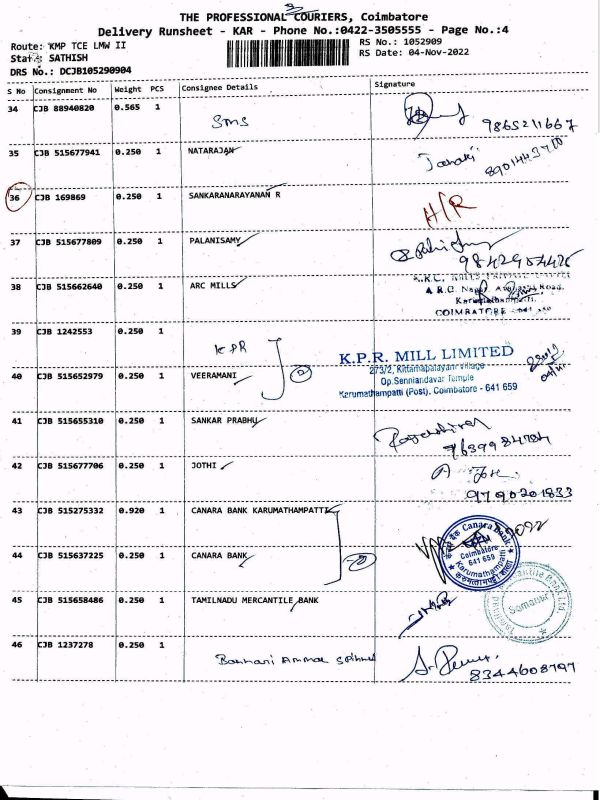 THE PROFESSIONAL COURIERS, Coimbatore
Delivery Runsheet - KAR - Phone No.:0422-3505555 - Page No.:4
Route: KMP TCE LMW II
RS No.: 1052909
Staff: SATHISH
RS Date: 04-Nov-2022
DRS No.: DCJB105290904
S No Consignment No Weight PCS Consignee Details Signature
34 CJB 88940820 0.565 1 SMS 9865211667
35 CJB 515677941 0.250 1 NATARAJAN Janaki
36 CJB 169869 0.250 1 SANKARANARAYANAN R H/R
37 CJB 515677809 0.250 1 PALANISAMY
38 CJB 515662640 0.250 1 ARC MILLS
COIMBATORE
39 CJB 1242553 0.250 1 KPR
K.P.R. MILL LIMITED
273/2, Kittampalayam Village
40 CJB 515652979 0.250 1 VEERAMANI 2
Op.Senniandavar Temple
Karumathampatti (Post), Coimbatore - 641 659
41 CJB 515655310 0.250 1 SANKAR PRABHU
42 CJB 515677706 0.250 1 JOTHI
9790201833
43 CJB 515275332 0.920 1 CANARA BANK KARUMATHAMPATTI
44 CJB 515637225 0.250 1 CANARA BANK
Canara Bank
Coimbatore
641 659
Karumathampatti
45 CJB 515658486 0.250 1 TAMILNADU MERCANTILE BANK
Somanur
46 CJB 1237278 0.250 1 Bannari Amman
8344608797